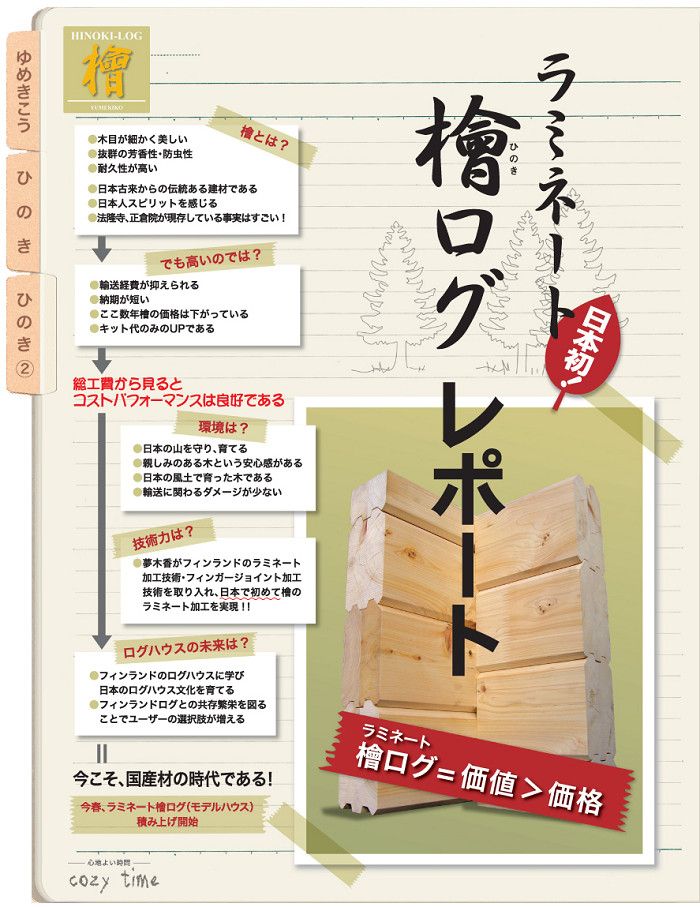 ゆめきこう
ひのき
ひのき②
HINOKI-LOG
檜
YUMEKIKO
ラミネート
檜ログ
ひのき
レポート
日本初!
檜とは？
●木目が細かく美しい
●抜群の芳香性・防虫性
●耐久性が高い
●日本古来からの伝統ある建材である
●日本人スピリットを感じる
●法隆寺、正倉院が現存している事実はすごい！
でも高いのでは？
●輸送経費が抑えられる
●納期が短い
●ここ数年檜の価格は下がっている
●キット代のみのUPである
総工費から見ると
コストパフォーマンスは良好である
環境は？
●日本の山を守り、育てる
●親しみのある木という安心感がある
●日本の風土で育った木である
●輸送に関わるダメージが少ない
技術力は？
●夢木香がフィンランドのラミネート
加工技術・フィンガージョイント加工
技術を取り入れ、日本で初めて檜の
ラミネート加工を実現！！
ログハウスの未来は？
●フィンランドのログハウスに学び
日本のログハウス文化を育てる
●フィンランドログとの共存繁栄を図る
ことでユーザーの選択肢が増える
今こそ、国産材の時代である！
今春、ラミネート檜ログ（モデルハウス）
積み上げ開始
ラミネート
檜ログ＝価値＞価格
心地よい時間
cozy time